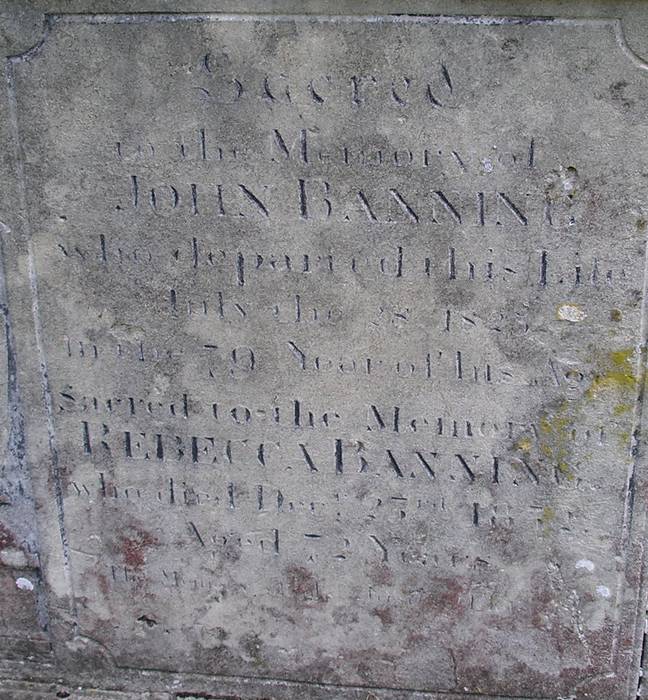 Sacred
to the Memory of
JOHN BANNING
who departed this Life
July the 28 1825
in the 79 Year of his Age
Sacred to the Memory of
REBECCA BANNING
who died Decr. 23rd
Aged 72 Years
The